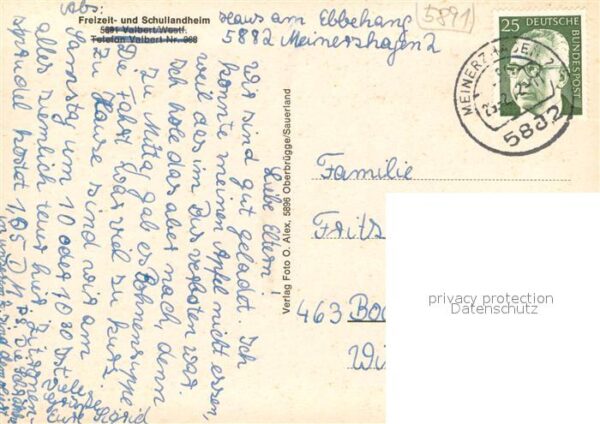 Abs:
Freizeit- und Schullandheim
5891 Valbert/Westf.
Telefon Valbert Nr.
Haus am Ebbehang
5882 Meinerzhagen 2
5891
25
DEUTSCHE
BUNDESPOST
MEINERZHAGEN 2
5882
Liebe Eltern!
Wir sind gut gelandet. Ich
konnte meinen Apfel nicht essen,
weil das im Bus verboten war.
Ich hole das aber nach, denn
zu Mittag gab es Bohnensuppe
Die Fahrt war viel zu kurz.
Zu Hause sind wir am
Samstag um 10 oder 10 30. Ist
alles ziemlich teuer hier. Zitronen-
sprudel kostet 1,65 DM. P.S. Die
viele
Grüße
Eure
Verlag Foto O. Alex, 5896 Oberbrügge/Sauerland
Familie
Fritz
463 Boc
Wi
privacy protection
Datenschutz